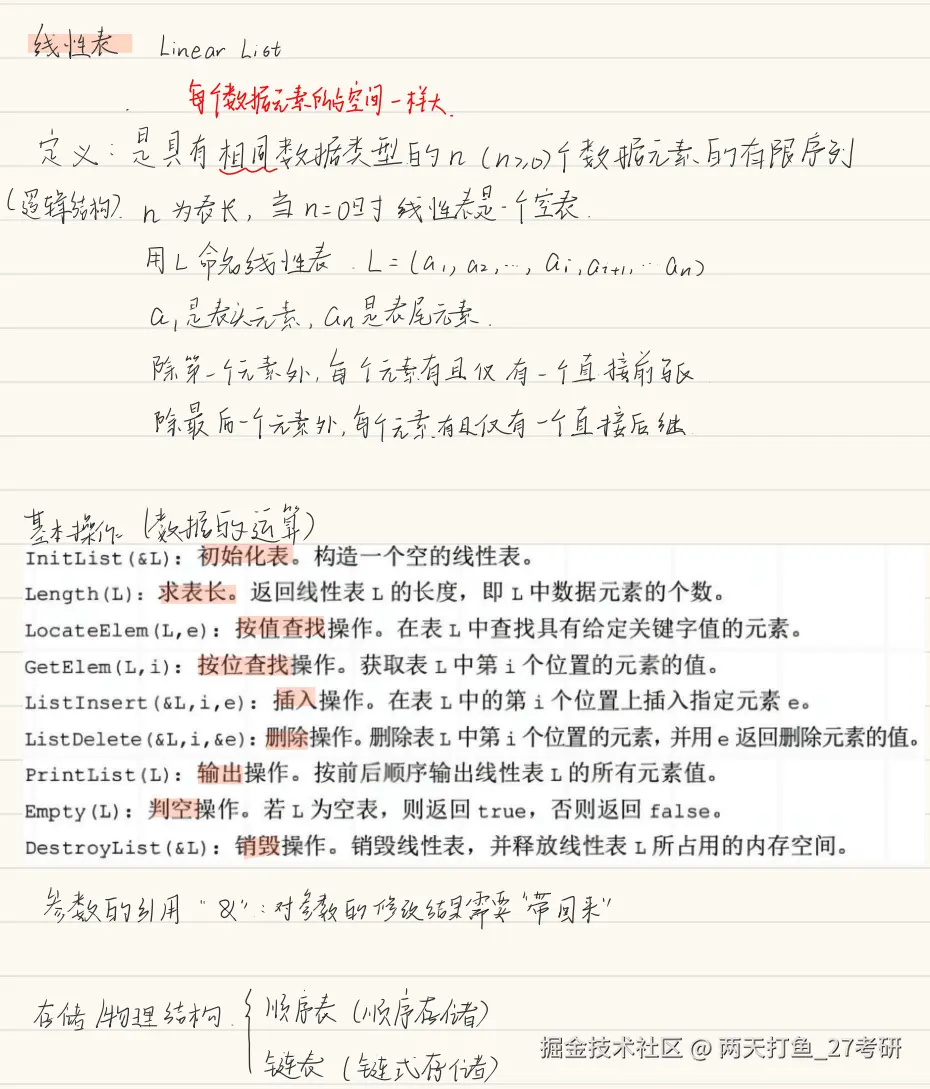 线性表 Linear List
每个数据元素所占空间一样大.
定义：是具有相同数据类型的n(n≥0)个数据元素的有限序列
(逻辑结构). n为表长，当n=0时 线性表是一个空表.
用L命名线性表. L=(a1, a2,…, ai, ai+1,… an)
a1是表头元素, an是表尾元素.
除第一个元素外,每个元素有且仅有一个直接前驱
除最后一个元素外,每个元素有且仅有一个直接后继
基本操作(数据的运算)
InitList(&L)：初始化表。构造一个空的线性表。
Length(L)：求表长。返回线性表L的长度，即L中数据元素的个数。
LocateElem(L,e)：按值查找操作。在表L中查找具有给定关键字值的元素。
GetElem(L,i)：按位查找操作。获取表L中第i个位置的元素的值。
ListInsert(&L,i,e)：插入操作。在表L中的第i个位置上插入指定元素e。
ListDelete(&L,i,&e)：删除操作。删除表L中第i个位置的元素，并用e返回删除元素的值。
PrintList(L)：输出操作。按前后顺序输出线性表L的所有元素值。
Empty(L)：判空操作。若L为空表，则返回true，否则返回false。
DestroyList(&L)：销毁操作。销毁线性表，并释放线性表L所占用的内存空间。
参数的引用"&"：对参数的修改结果需要"带回来"
存储/物理结构. { 顺序表(顺序存储)
链表(链式存储)
掘金技术社区 @ 两天打鱼_27考研